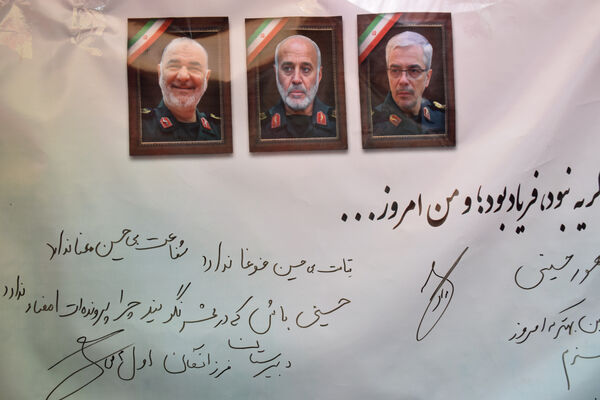 گریه نبود، فریاد بود؛ و من امروز...
قیامت بی حسین غوغا ندارد شفاعت بی حسین معنا ندارد
حسینی باش که در محشر نگویند چرا پرونده‌ات امضاء ندارد
دبیرستان فرزانگان اول
حسینی
بهتر که امروز